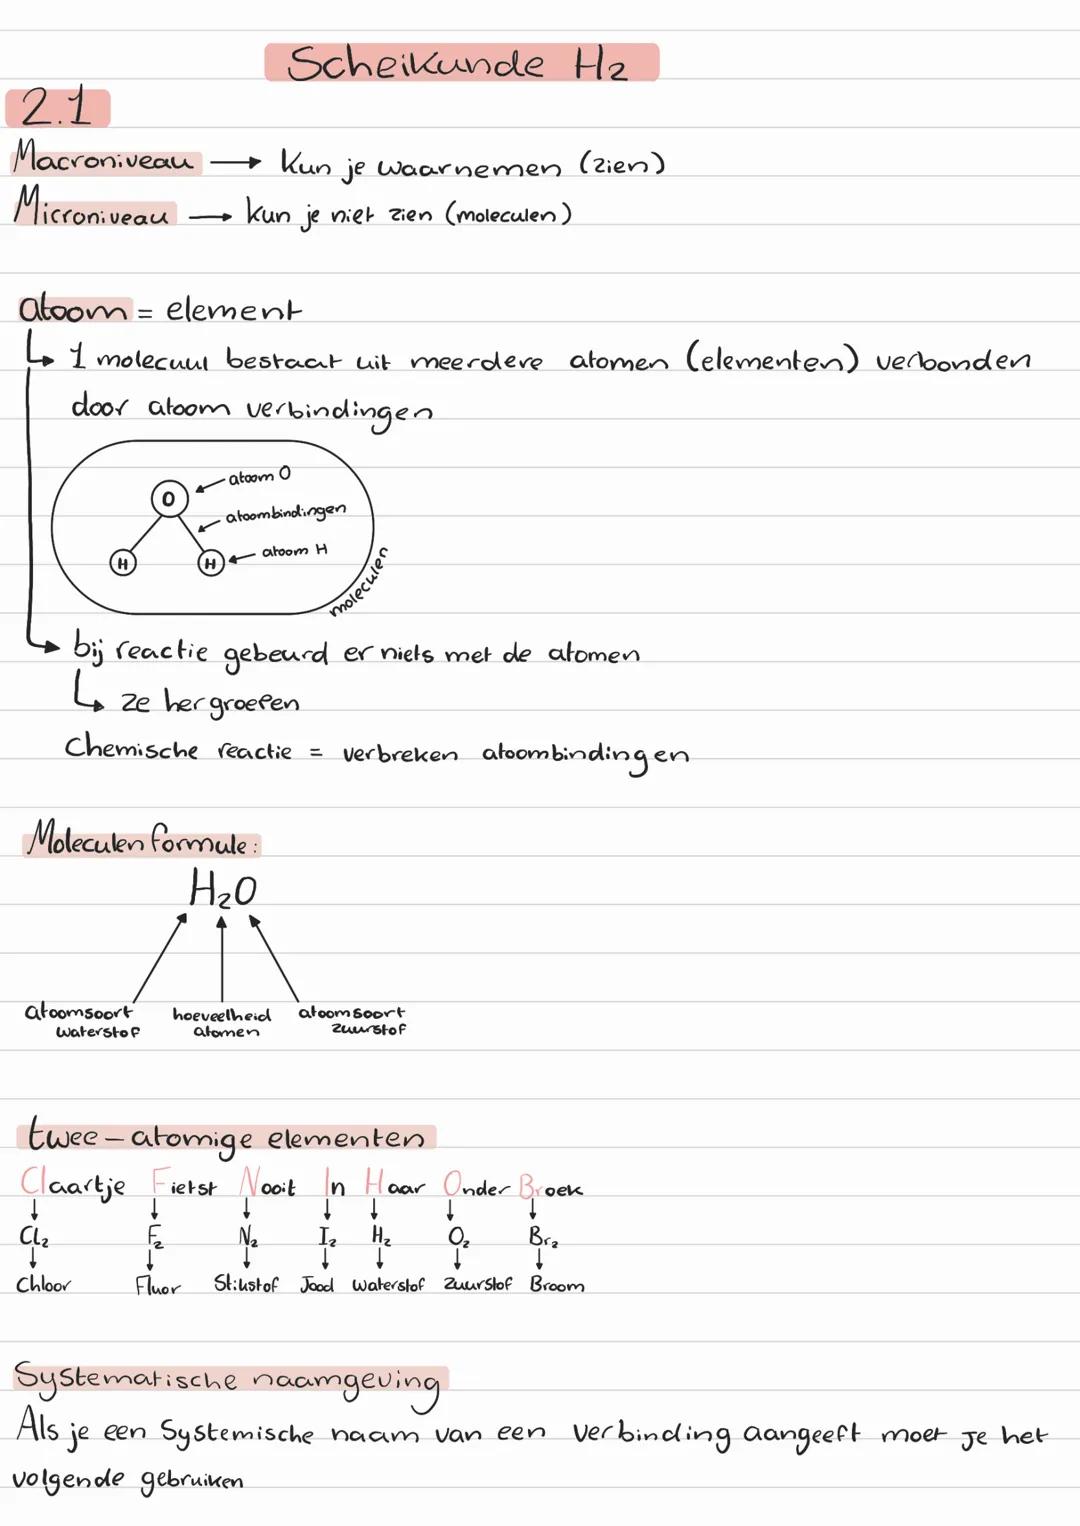 Scheikunde H2
2.1
Macroniveau → kun je waarnemen (zien)
Microniveau → kun je niet zien (moleculen)
atoom = element
↳ 1 molecuul bestaat uit meerdere atomen (elementen) verbonden
door atoom verbindingen
O
atoom O
atoombindingen
H
H
atoom H
moleculen
↳ bij reactie gebeurd er niets met de atomen
↳ ze hergroepen
Chemische reactie = verbreken atoombindingen
Moleculen formule:
H₂O
atoomsoort waterstof
hoeveelheid atomen
atoomsoort zuurstof
twee-atomige elementen
Claartje Fietst Nooit In Haar Onder Broek
↓ ↓ ↓ ↓ ↓ ↓ ↓
Cl₂ F₂ N₂ I₂ H₂ O₂ Br₂
↓ ↓ ↓ ↓ ↓ ↓ ↓
Chloor Fluor Stikstof Jood waterstof zuurstof Broom
Systematische naamgeving
Als je een Systemische naam van een verbinding aangeeft moet je het
volgende gebruiken